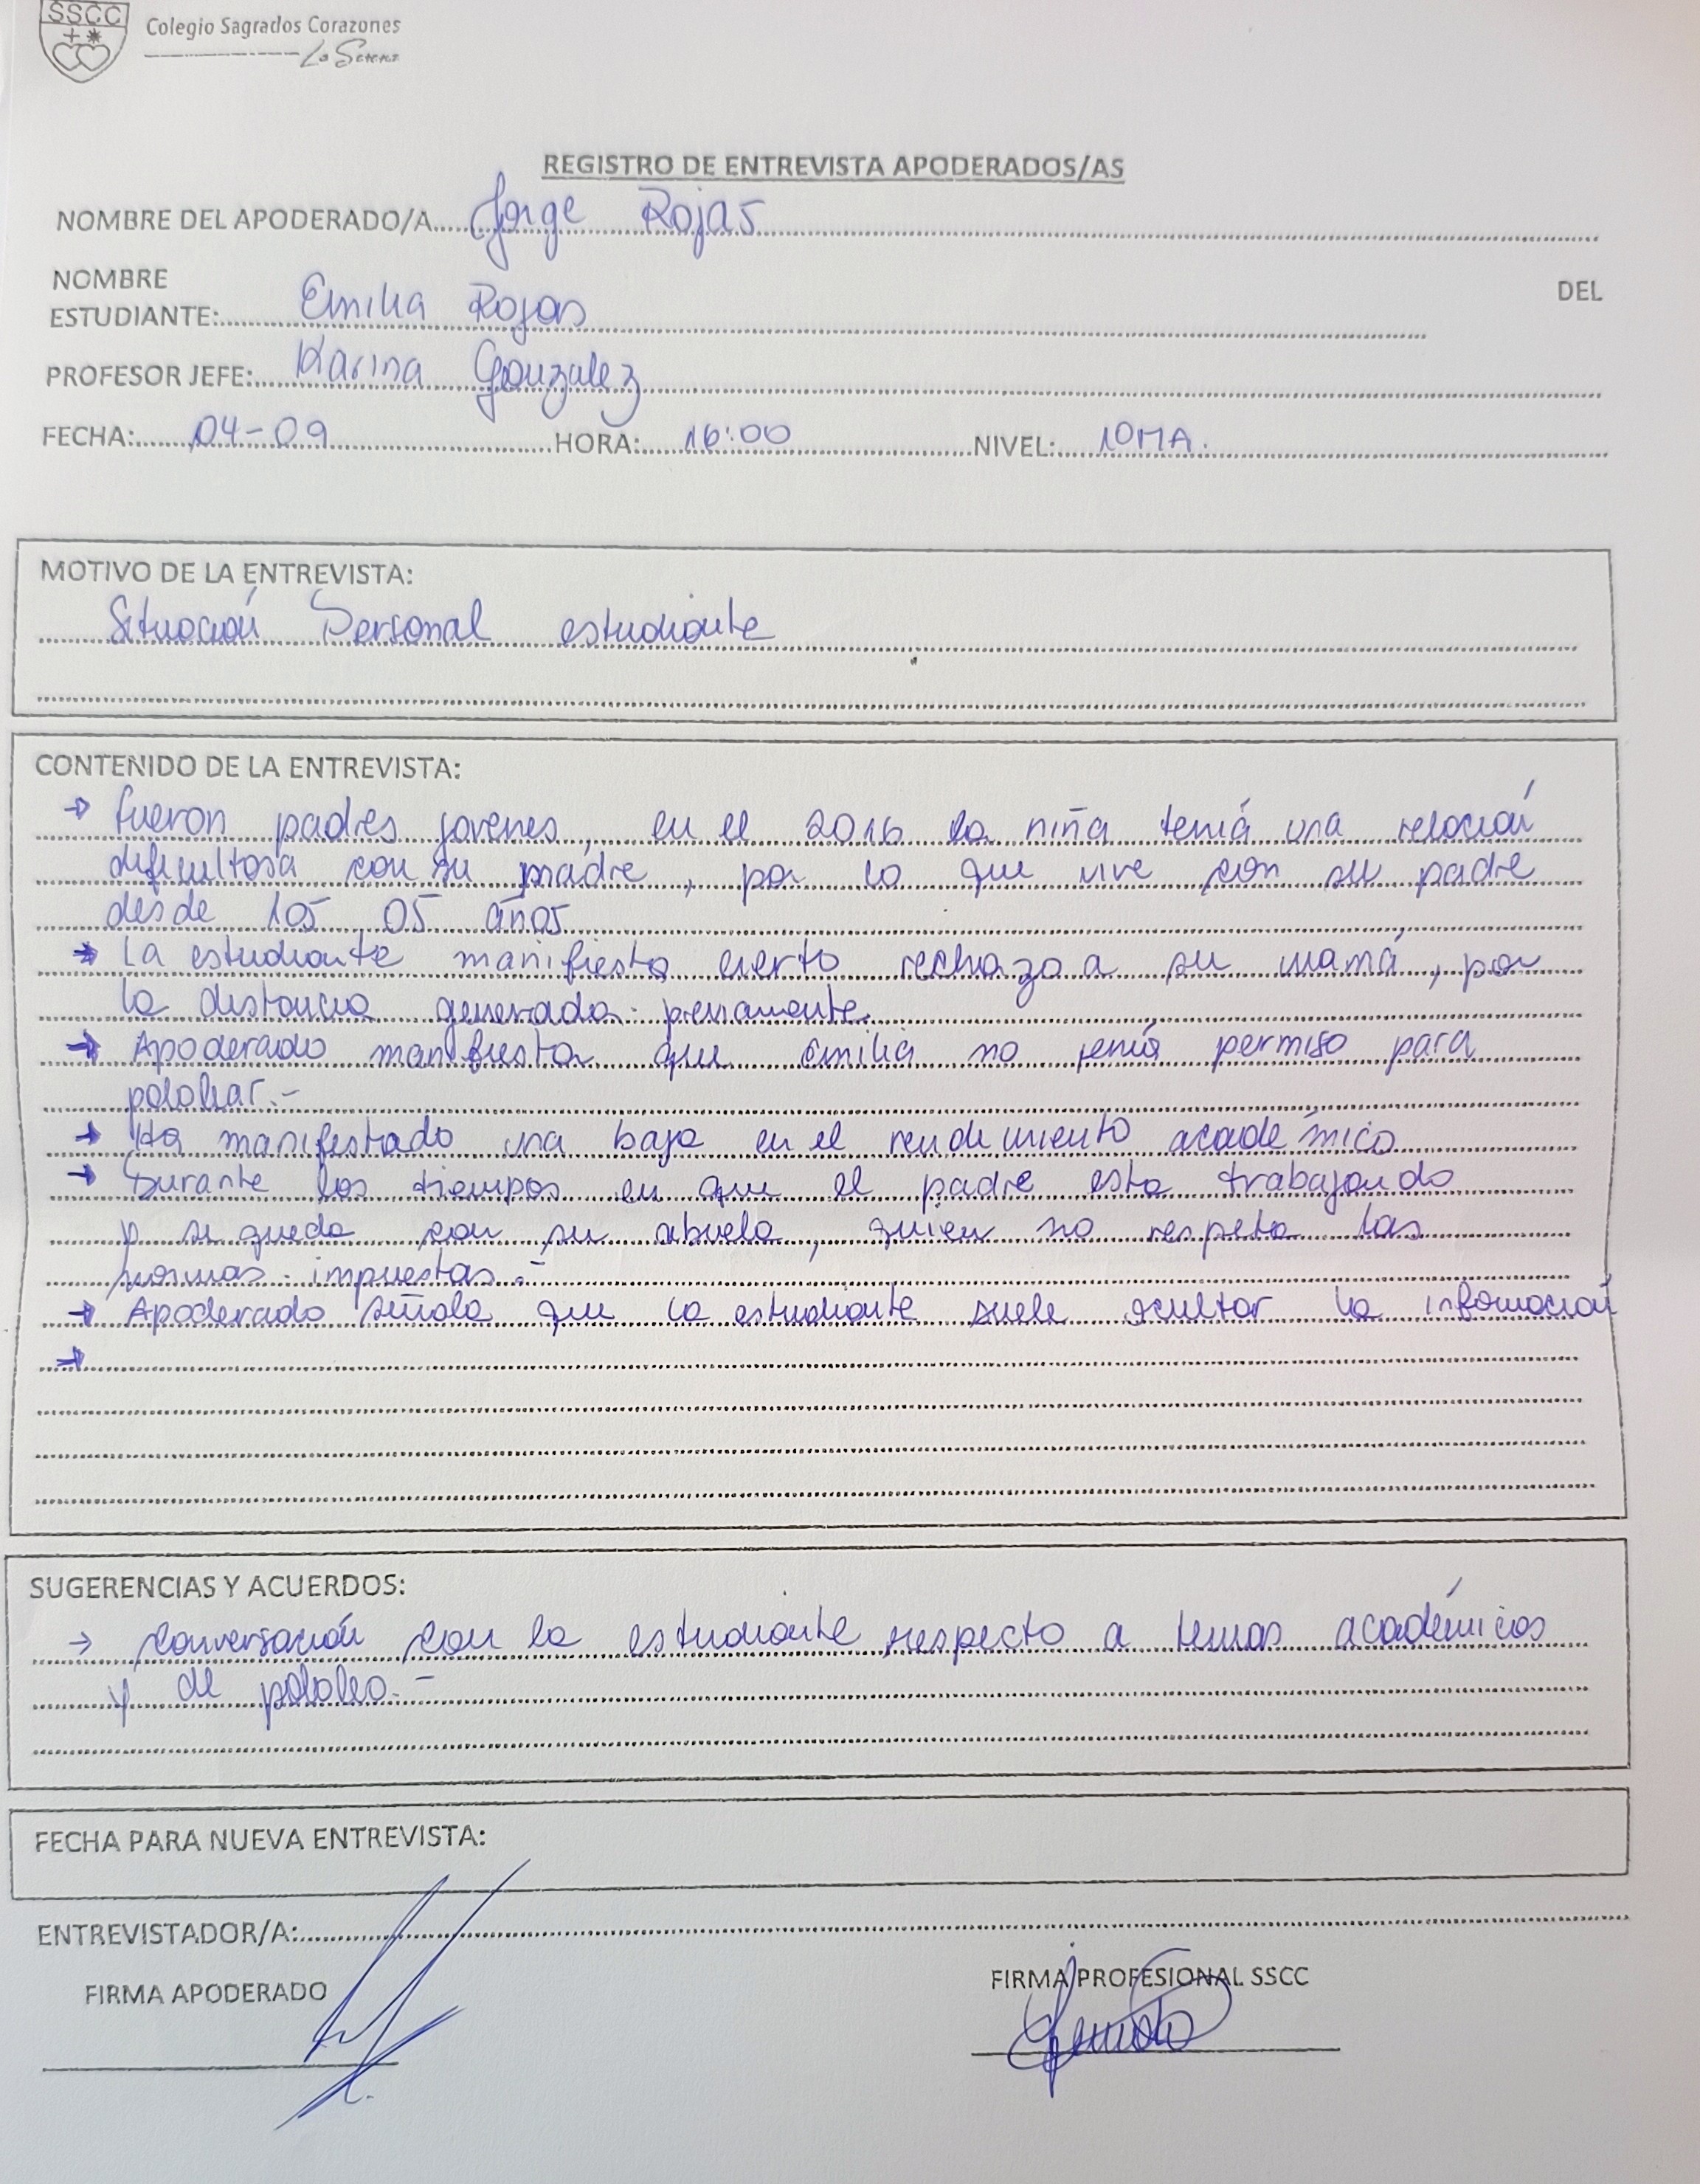 SSCC
Colegio Sagrados Corazones
La Serena
REGISTRO DE ENTREVISTA APODERADOS/AS
NOMBRE DEL APODERADO/A Jorge Rojas
NOMBRE DEL
ESTUDIANTE: Emilia Rojas
PROFESOR JEFE: Karina Gonzalez
FECHA: 04-09 HORA: 16:00 NIVEL: 1°MA.
MOTIVO DE LA ENTREVISTA:
Situación Personal estudiante
CONTENIDO DE LA ENTREVISTA:
→ fueron padres jovenes, en el 2016 la niña tenía una relación
dificultosa con su madre, por lo que vive con su padre
desde los 05 años
→ La estudiante manifiesta cierto rechazo a su mamá, por
la distancia generada previamente.
→ Apoderado manifiesta que Emilia no tenía permiso para
pololear.-
→ Ha manifestado una baja en el rendimiento académico
→ Durante los tiempos en que el padre esta trabajando
y se queda con su abuela, quien no respeta las
normas impuestas.-
→ Apoderado señala que la estudiante suele ocultar la información
→
SUGERENCIAS Y ACUERDOS:
→ conversación con la estudiante respecto a temas académicos
y de pololeo.-
FECHA PARA NUEVA ENTREVISTA:
ENTREVISTADOR/A:
FIRMA APODERADO FIRMA PROFESIONAL SSCC